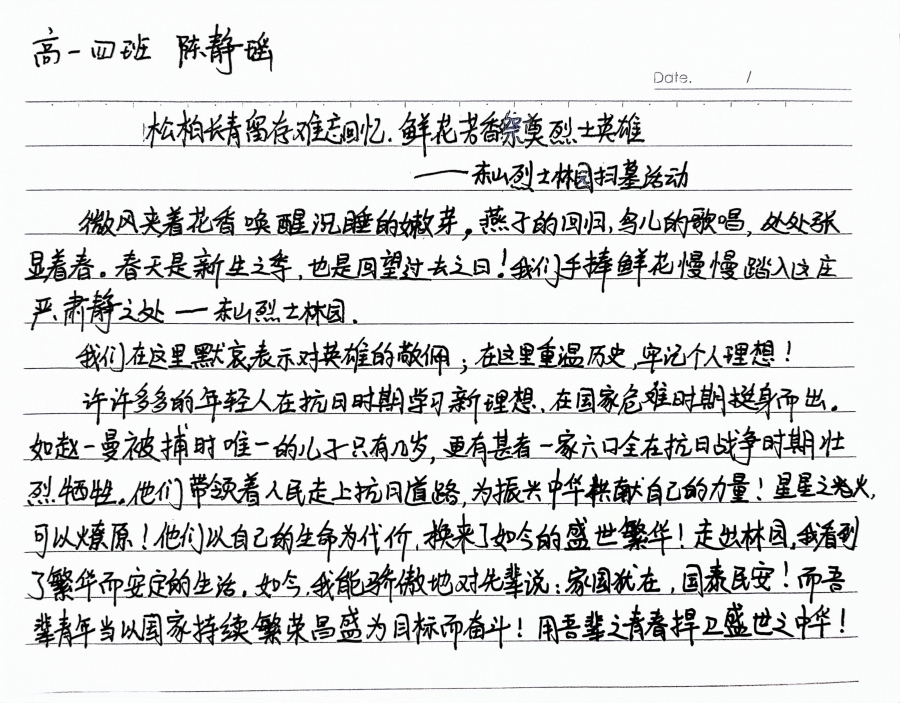 高一四班 陈静瑶
Date. /
松柏长青留存难忘回忆.鲜花芳香祭奠烈士英雄
——东山烈士林园扫墓活动
微风夹着花香唤醒沉睡的嫩芽。燕子的回归,鸟儿的歌唱,处处张
显着春。春天是新生之季,也是回望过去之日!我们手捧鲜花慢慢踏入这庄
严肃静之处—东山烈士林园.
我们在这里默哀,表示对英雄的敬佩;在这里重温历史,牢记个人理想!
许许多多的年轻人在抗日时期学习新理想、在国家危难时期挺身而出。
如赵一曼被捕时唯一的儿子只有几岁,更有甚者一家六口全在抗日战争时期壮
烈牺牲。他们带领着人民走上抗日道路,为振兴中华献自己的力量!星星之火,
可以燎原!他们以自己的生命为代价,换来了如今的盛世繁华!走出林园,我看到
了繁华而安定的生活。如今,我能骄傲地对先辈说:家国犹在,国泰民安!而吾
辈青年当以国家持续繁荣昌盛为目标而奋斗!用吾辈之青春捍卫盛世之中华!